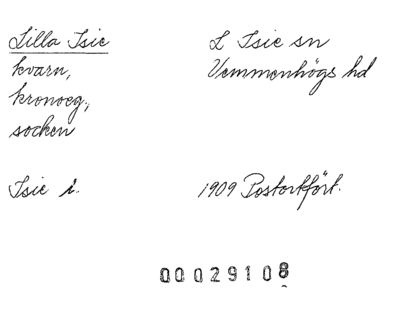 Lilla Isie
kvarn,
kronoeg,
socken
L Isie sn
Vemmenhögs hd
Isie L.
1909 Postortfört.
00029108